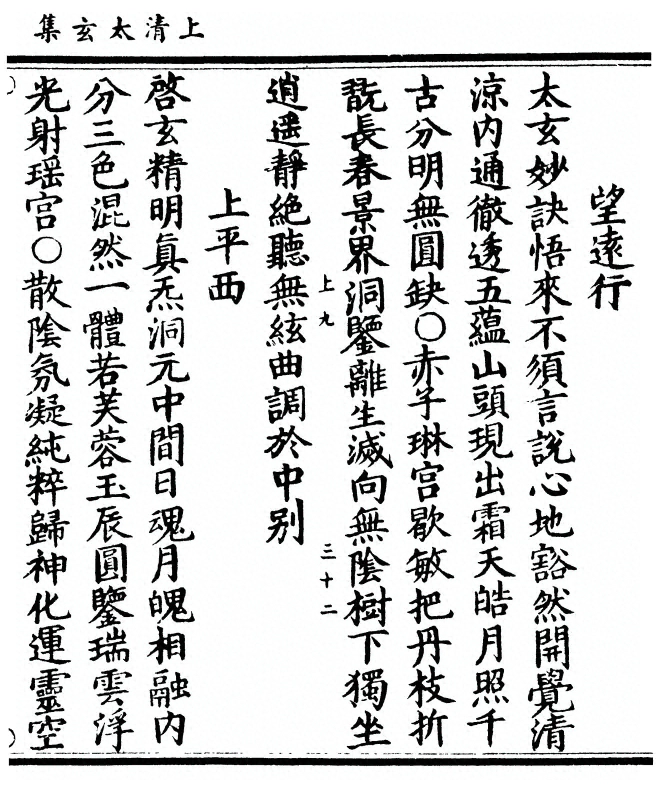 上清太玄集
望遠行
太玄妙訣悟來不須言說心地豁然開覺清
涼内通徹透五蘊山頭現出霜天皓月照千
古分明無圓缺○赤子琳宫歇敏把丹枝折
翫長春景界洞鑒離生滅向無陰樹下獨坐
上九
三十二
逍遥靜絶聽無絃曲調於中别
上平西
啓玄精明真炁洞元中間日魂月魄相融内
分三色混然一體若芙蓉玉辰圓鑒瑞雲浮
光射瑶宫○散陰氛凝純粹歸神化運靈空